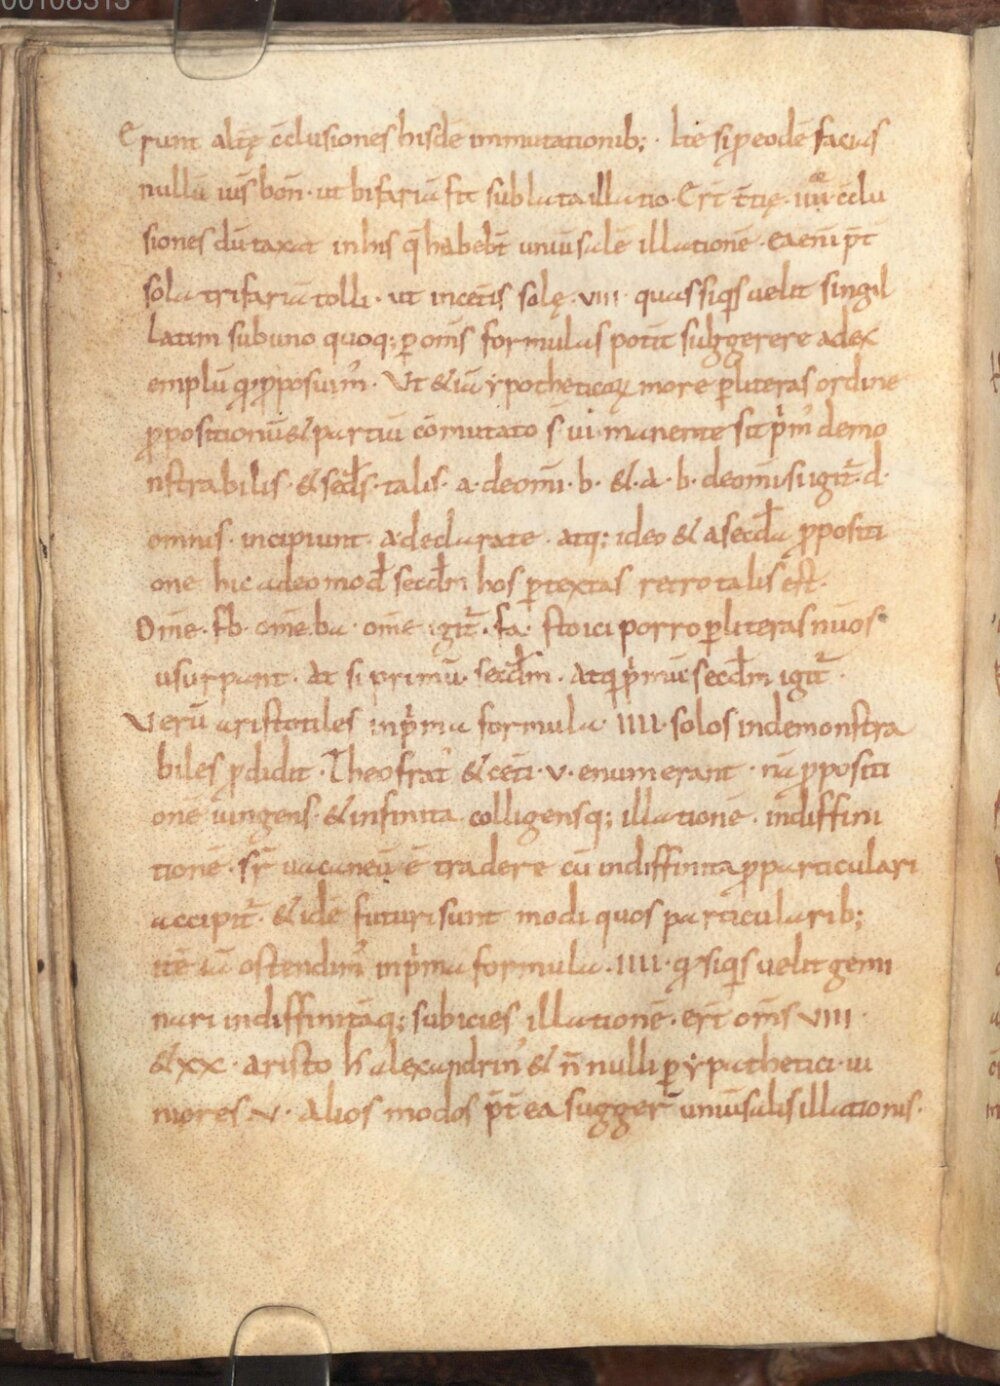 00108313
Erunt altę c̄clusiones hisdē immutationib; · Itē si p̱ eodē facias
nullū iūs bon̄ · ut bifariā fit sublata illatio · Erī t̄tię · iiii · c̄clu
siones dūtaxat in his q̄ habebt̄ uniūsalē illationē · ea eni p̄t
sola trifariā tolli · ut in cet̄is solę · viii · quas siq̄s uelit singil
latim sub uno quoq; p̱ om̄s formulas potit suggerere ad ex
emplū q̱ p̱posuim᾽ · Vt & iā ypotheticoꝝ more p̱ literas ordine
p̱positionū & partiū cōmutato s· ui· manente sit p̄m᾽ demo
nstrabilis · & secd̄s · talis · a · de om̄i · b · & · a · b · de om̄i si igit̄ · d ·
omnis · incipiunt · a declarate · atq; ideo & a secd̄a p̱positi
one hic adeo mod̄ secd̄m hos p̱textas retro talis est ·
Om̄e · fb · om̄e ba · om̄e igit̄ · fa · stoici porro p̱ literas nūos
usurpant · At si primū · secd̄m · atq̱ p̄mū secd̄m igit̄ ·
Verū aristotiles in p̄ma formula · IIII · solos indemonstra
biles p̱didit · Theofrat᾽ & cet̄i · v · enumerant · nā p̱positi
onē iungens & infinita colligensq; illationē · indiffini
tionē · sr̄ uacaneū ē tradere cū indiffinita p̱ particulari
accipit̄ · & idē futuri sunt modi quos particularib;
itē iā ostendim᾽ in p̄ma formula · IIII · q̱ siq̄s uelit gemi
nari indiffinitāq; subicies illationē · er̄t om̄s VIIII ·
& xx · aristo h̄ alexandrin᾽ & n̄ nulli p̱ypathetici · iu
niores · v · alios modos p̄t ea sugger̄ uniūsalis illationis ·